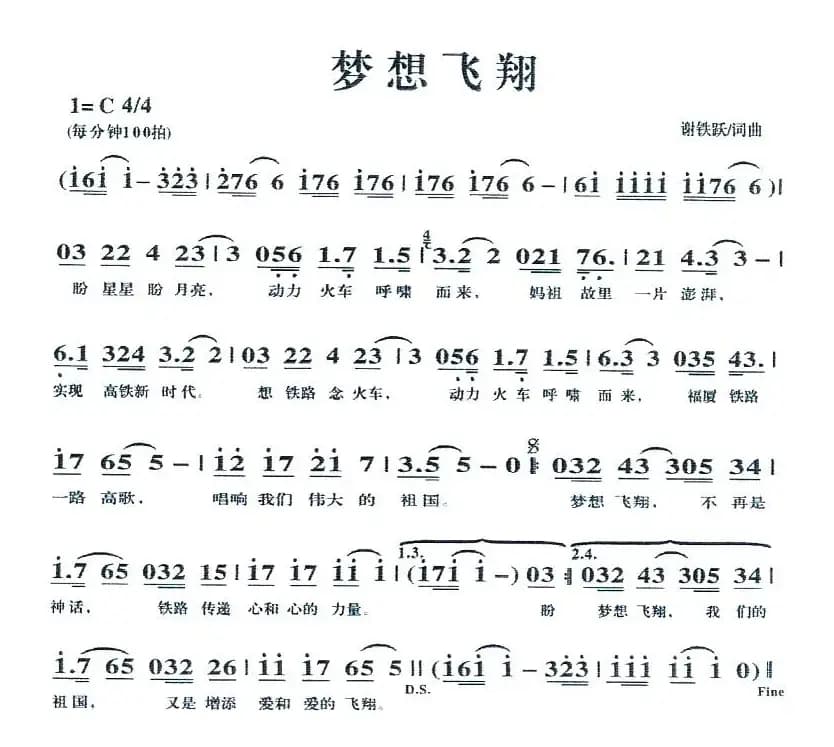 梦想飞翔
1= C 4/4
(每分钟100拍)
谢铁跃/词曲
(161 1 – 323 | 276 6 176 176 | 176 176 6 – | 61 1111 1176 6 ) |
03 22 4 23 | 3 056 1.7 1.5 | 3.2 2 021 76. | 21 4.3 3 – |
盼 星星 盼 月亮, 动力 火车 呼啸 而来, 妈祖 故里 一片 澎湃,
6.1 324 3.2 2 | 03 22 4 23 | 3 056 1.7 1.5 | 6.3 3 035 43. |
实现 高铁新 时代。 想 铁路 念 火车, 动力 火车 呼啸 而来, 福厦 铁路
17 65 5 – | 12 17 21 7 | 3.5 5 – 0 032 43 305 34 |
一路 高歌, 唱响 我们 伟大 的 祖国。 梦想 飞翔, 不 再是
1.3. 2.4.
1.7 65 032 15 | 17 17 11 1 | (171 1 –) 03 032 43 305 34 |
神话, 铁路 传递 心和 心的 力量。 盼 梦想 飞翔, 我 们的
1.7 65 032 26 | 11 17 65 5 || (161 1 – 323 | 111 11 1 0)
D.S. Fine
祖国, 又是 增添 爱和 爱的 飞翔。